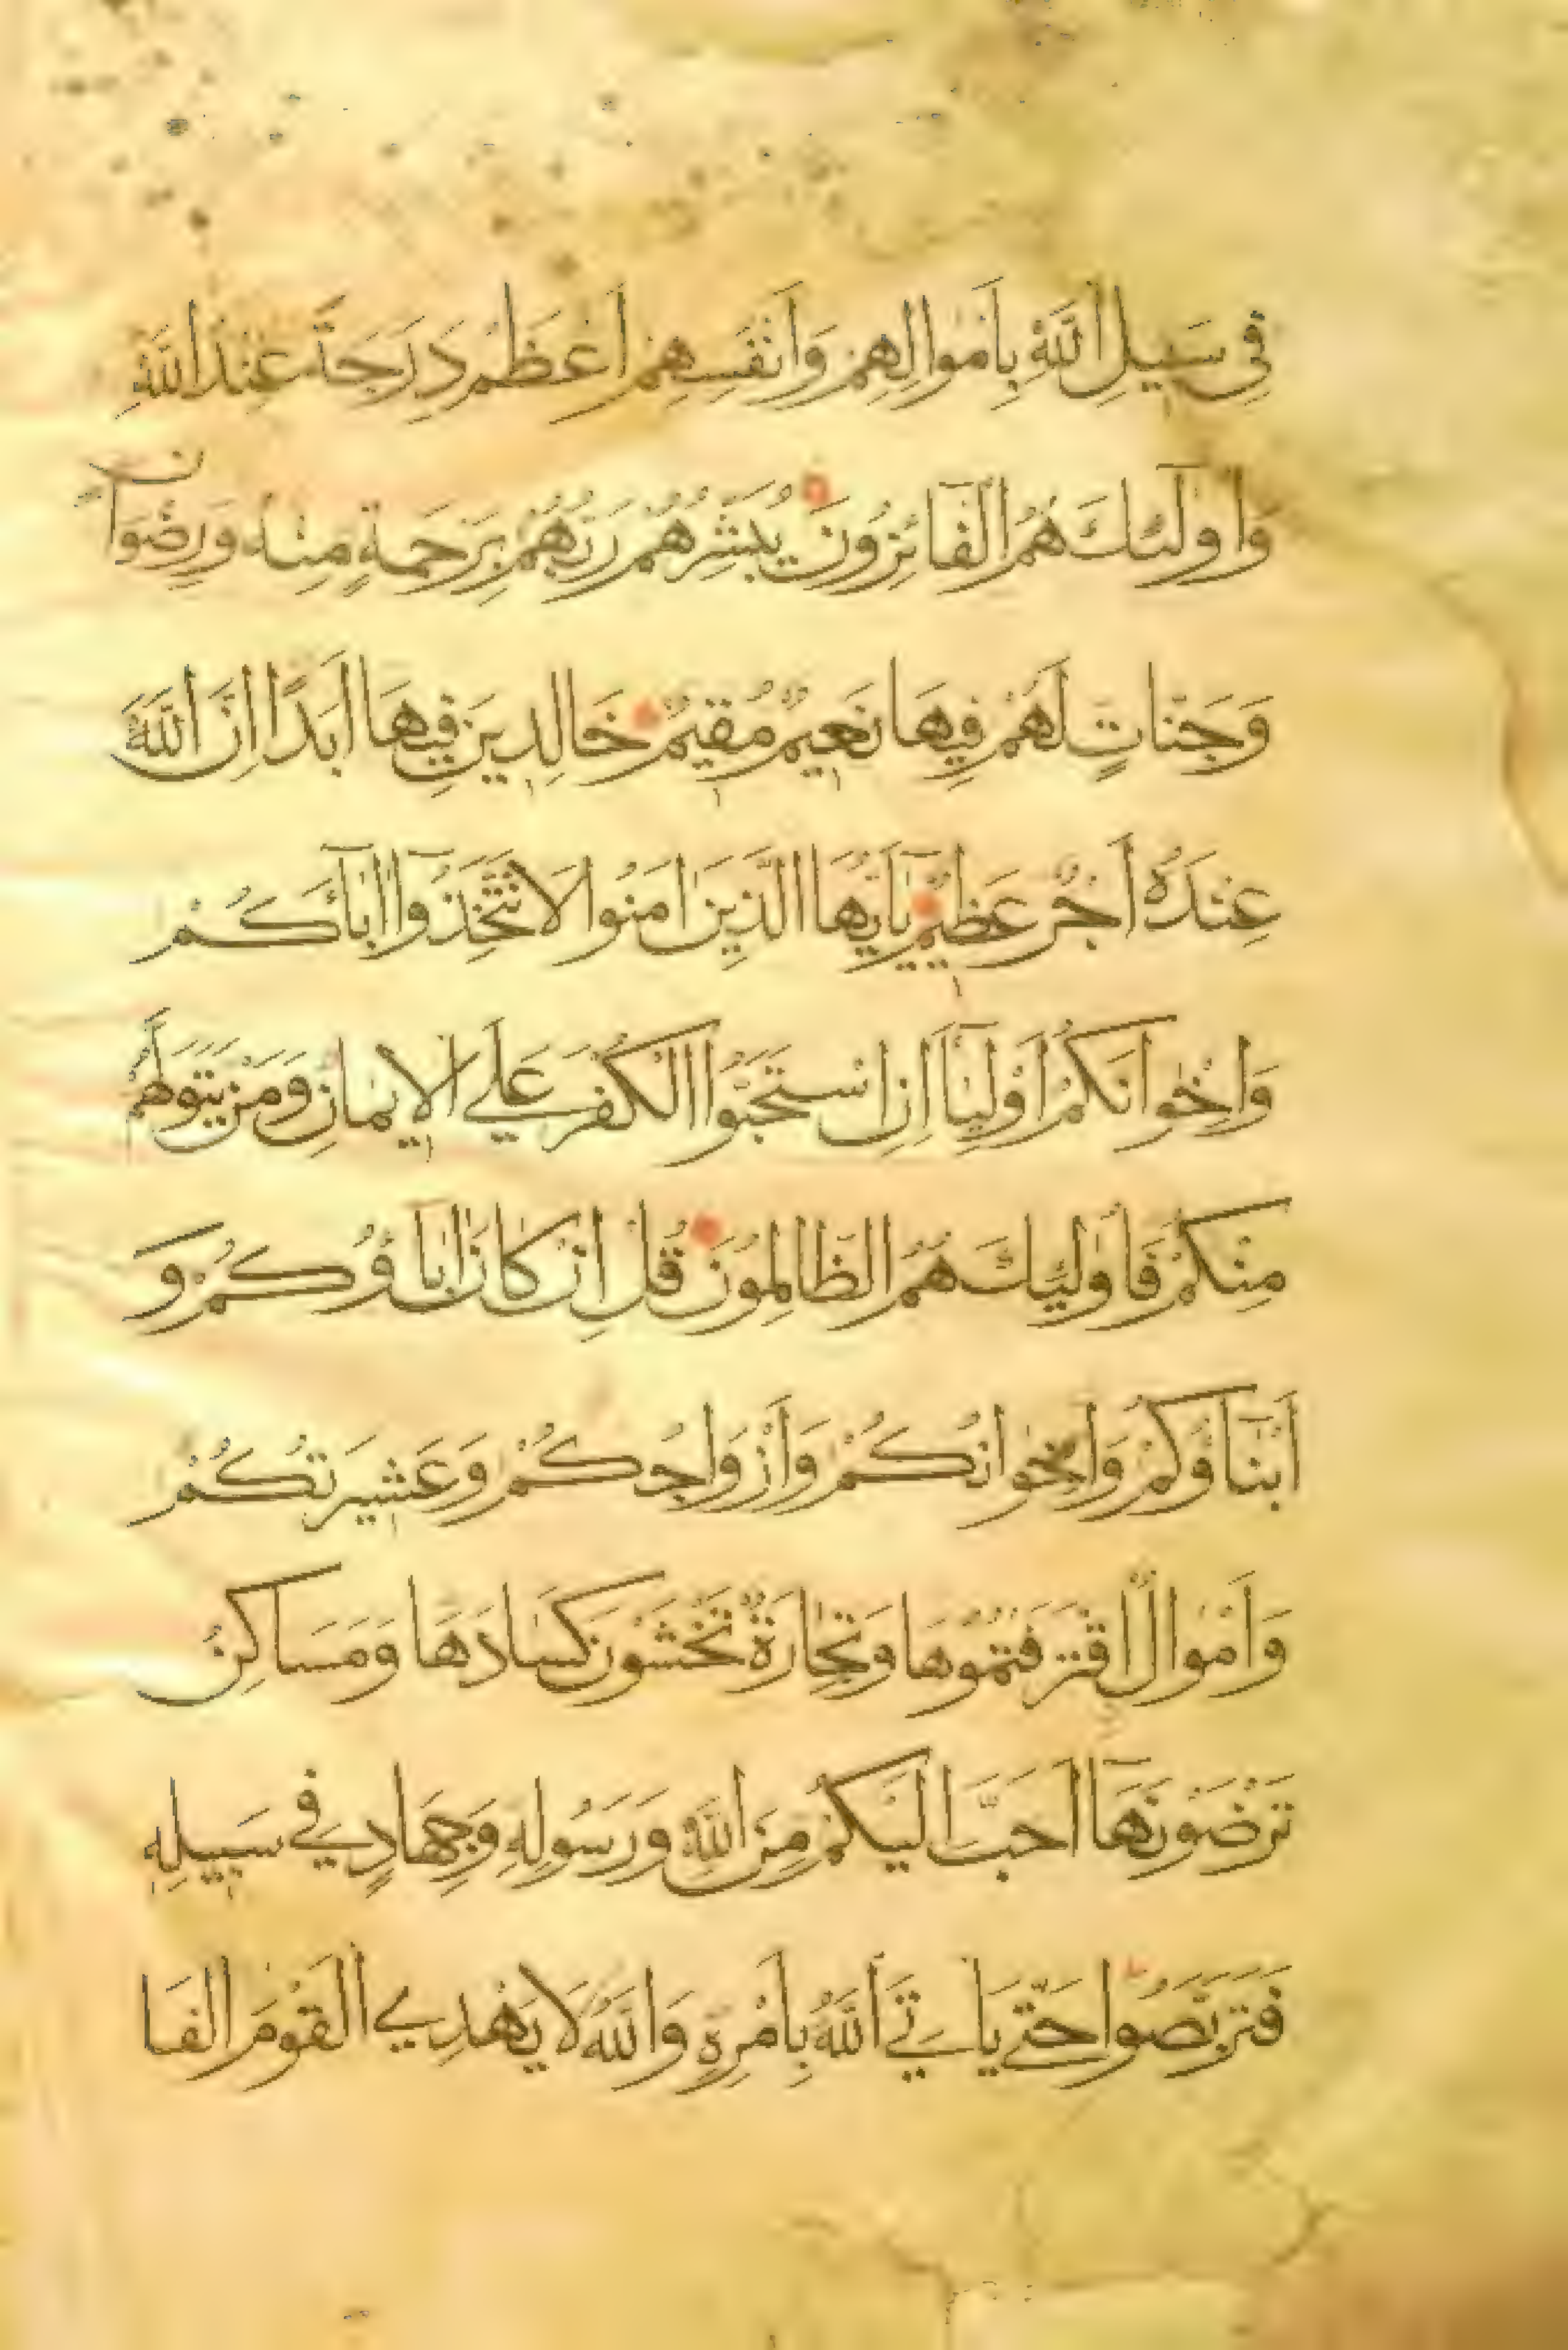 فِي سَبِيلِ اللَّهِ بِأَمْوَالِهِمْ وَأَنْفُسِهِمْ أَعْظَمُ دَرَجَةً عِنْدَ اللَّهِ
وَأُولَٰئِكَ هُمُ الْفَائِزُونَ يُبَشِّرُهُمْ رَبُّهُمْ بِرَحْمَةٍ مِنْهُ وَرِضْوَانٍ
وَجَنَّاتٍ لَهُمْ فِيهَا نَعِيمٌ مُقِيمٌ خَالِدِينَ فِيهَا أَبَدًا إِنَّ اللَّهَ
عِنْدَهُ أَجْرٌ عَظِيمٌ يَاأَيُّهَا الَّذِينَ اٰمَنُوا لَا تَتَّخِذُوا اٰبَآءَكُمْ
وَإِخْوَانَكُمْ أَوْلِيَآءَ إِنِ اسْتَحَبُّوا الْكُفْرَ عَلَى الْإِيمَانِ وَمَنْ يَتَوَلَّهُمْ
مِنْكُمْ فَأُولَٰئِكَ هُمُ الظَّالِمُونَ قُلْ إِنْ كَانَ اٰبَاؤُكُمْ وَ
أَبْنَآؤُكُمْ وَإِخْوَانُكُمْ وَأَزْوَاجُكُمْ وَعَشِيرَتُكُمْ
وَأَمْوَالٌ اقْتَرَفْتُمُوهَا وَتِجَارَةٌ تَخْشَوْنَ كَسَادَهَا وَمَسَاكِنُ
تَرْضَوْنَهَآ أَحَبَّ إِلَيْكُمْ مِنَ اللَّهِ وَرَسُولِهِ وَجِهَادٍ فِي سَبِيلِهِ
فَتَرَبَّصُوا حَتَّى يَأْتِيَ اللَّهُ بِأَمْرِهِ وَاللَّهُ لَا يَهْدِي الْقَوْمَ الْفَا